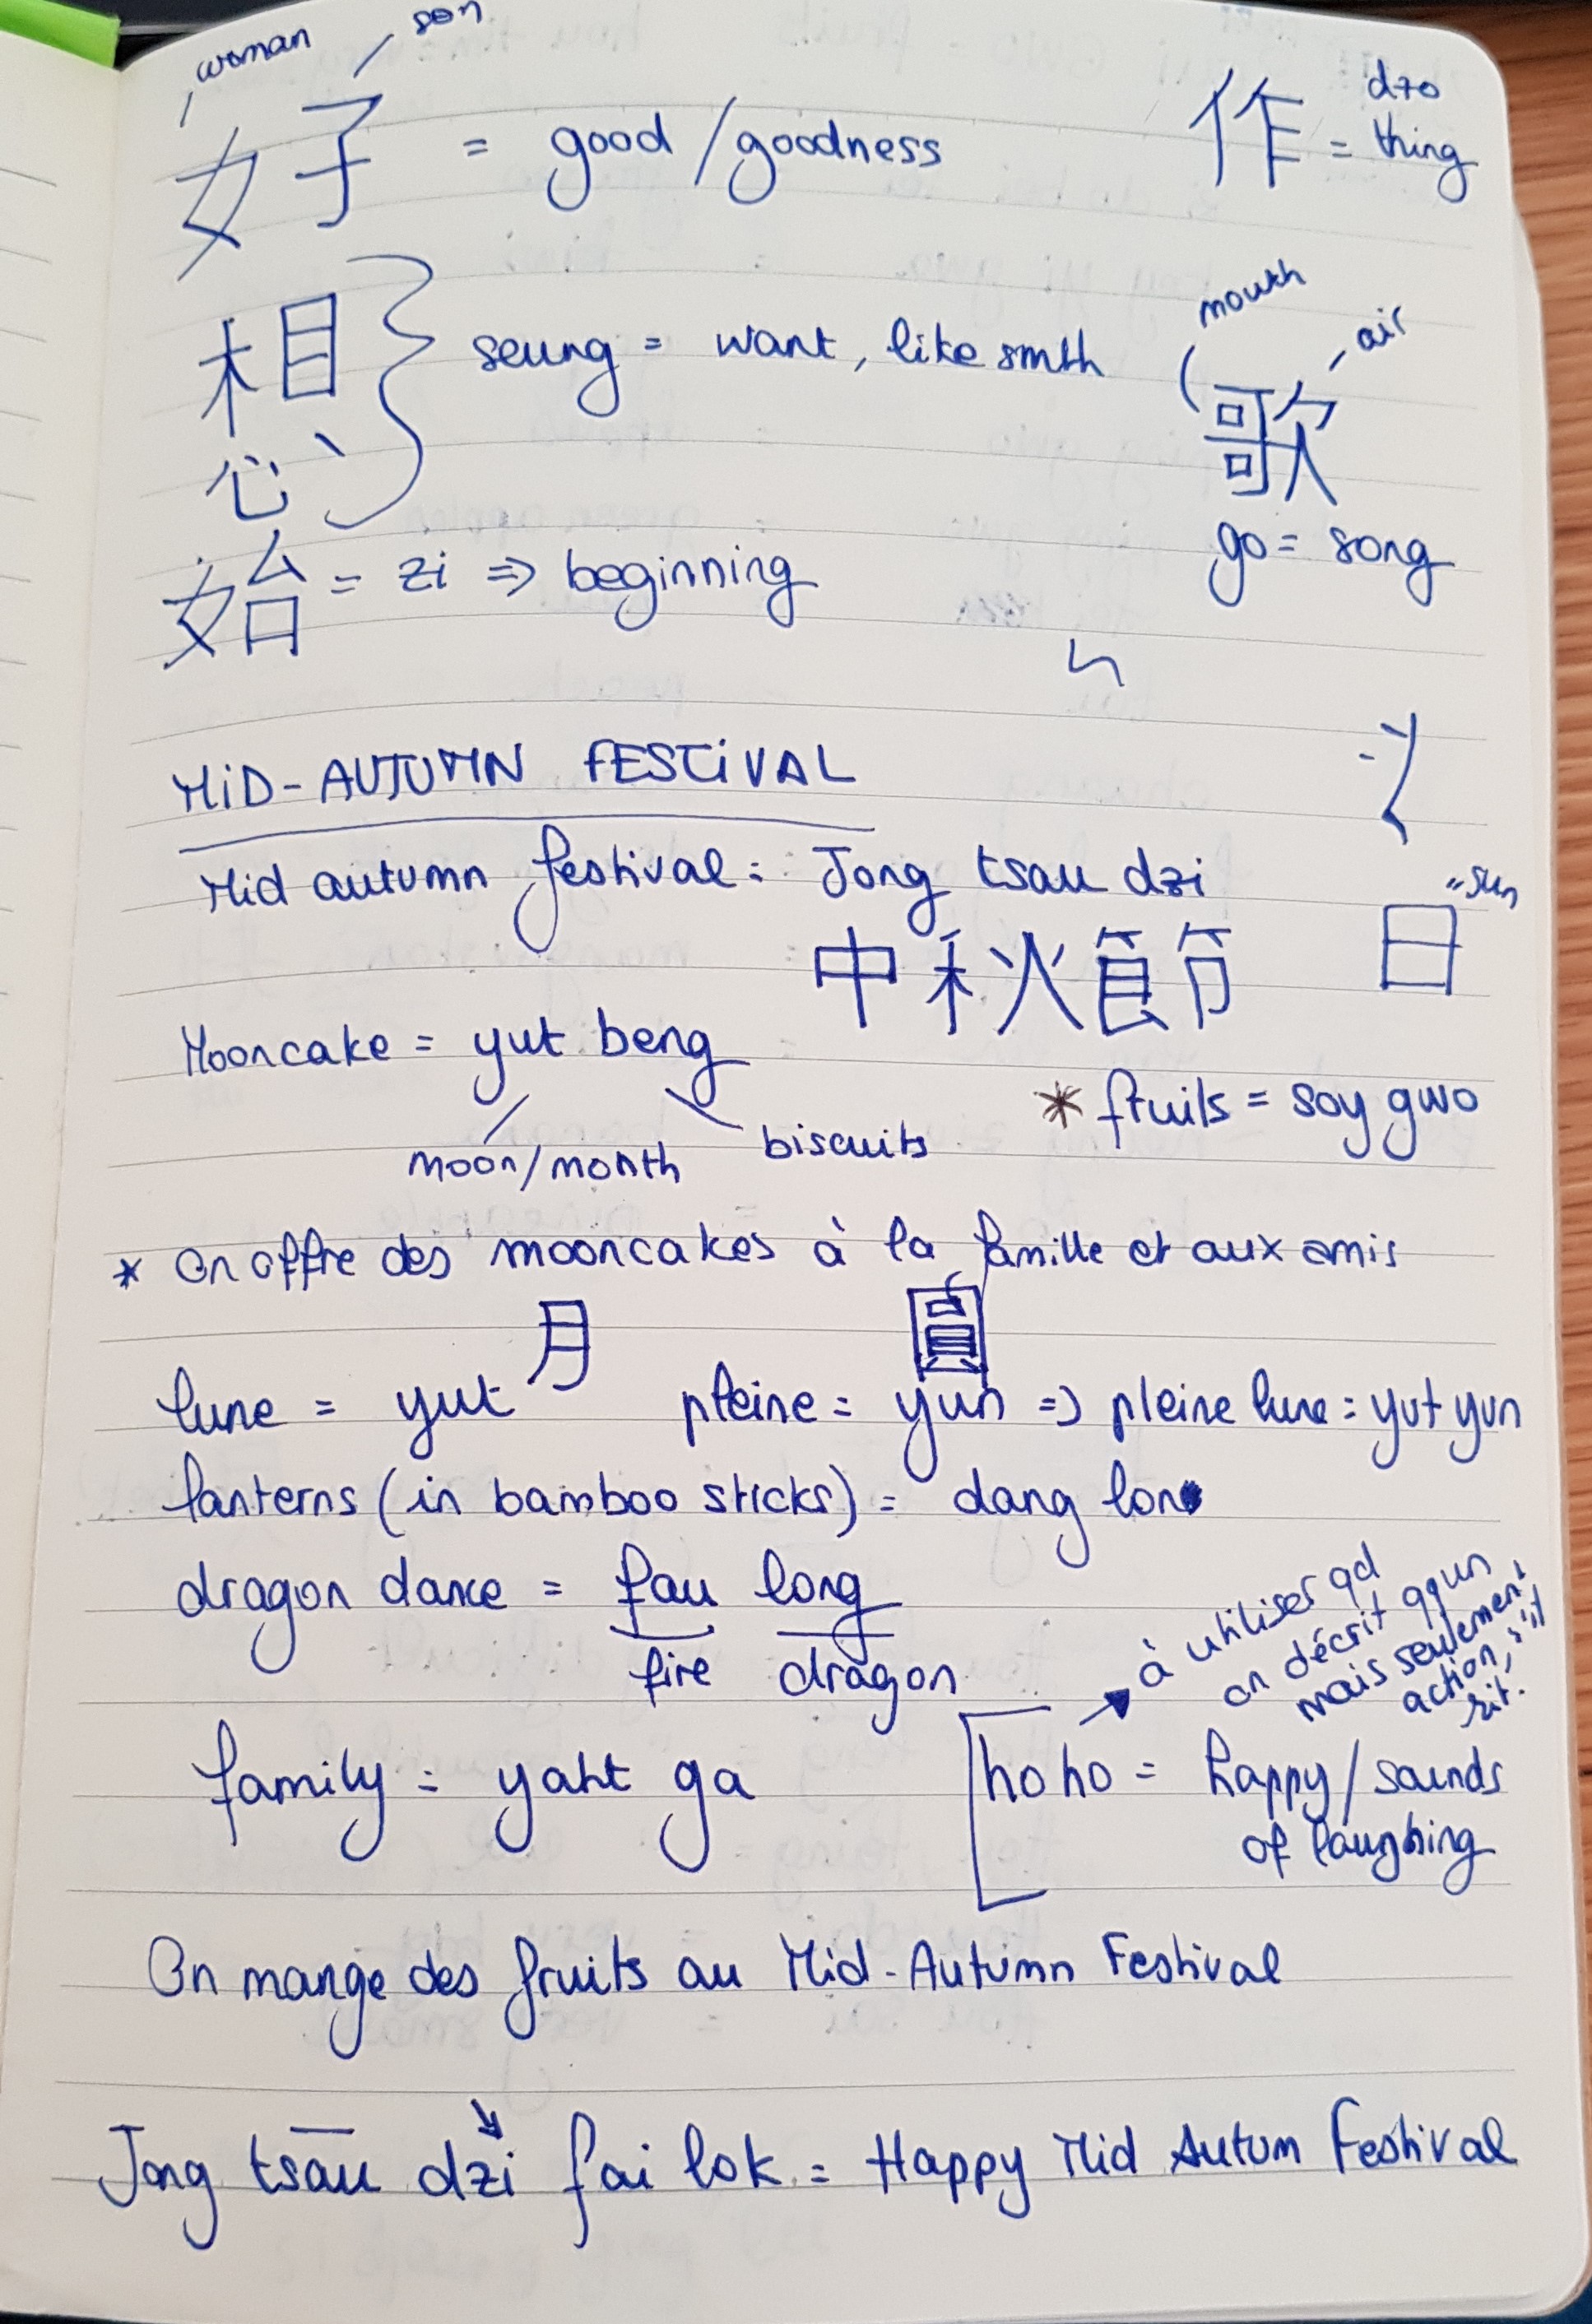 woman son
好 = good / goodness
作 = dzo
thing
想 seung = want, like smth
mouth
air
歌
go = song
始 = zi => beginning
MiD-AUTUMN FESTiVAL
Mid autumn festival = Jong tsau dzi
中秋節
日 = sun
Mooncake = yut beng
moon/month biscuits
* fruits = soy gwo
* on offre des mooncakes à la famille et aux amis
月 圓
lune = yut pleine = yun => pleine lune = yut yun
lanterns (in bamboo sticks) = dang lon
dragon dance = fau long
fire dragon
à utiliser qd
on décrit qqun
mais seulement
action, s'il
rit.
family = yaht ga
ho ho = happy / sounds
of laughing
On mange des fruits au Mid-Autumn Festival
Jong tsau dzi fai lok = Happy Mid Autum Festival